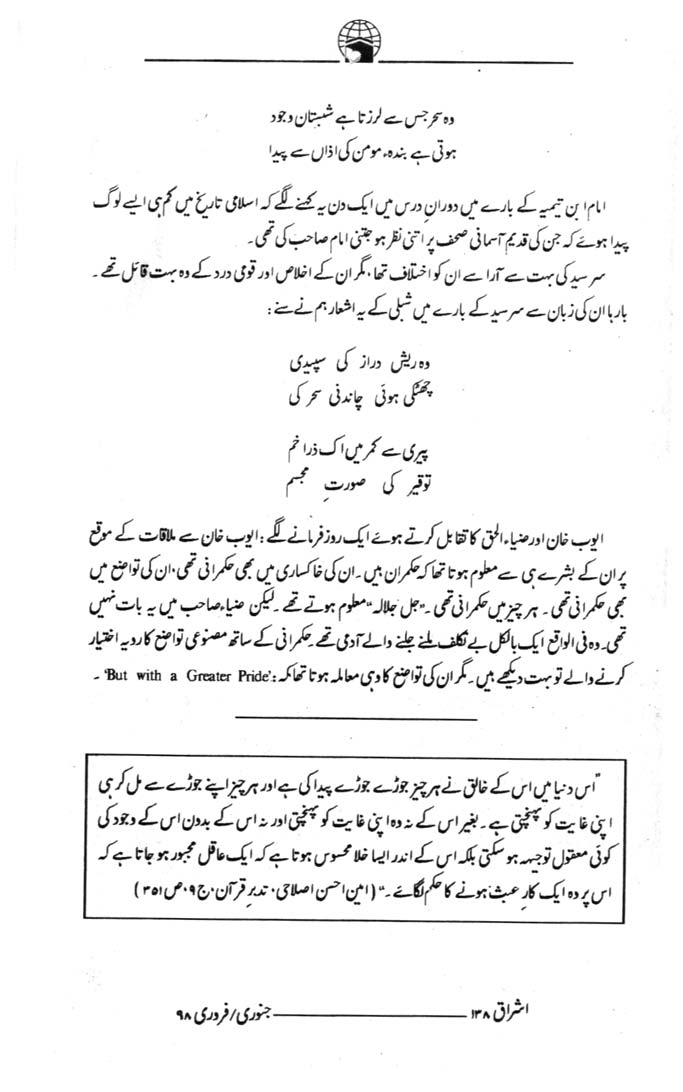 وہ سحر جس سے لرزتا ہے شبستان وجود
ہوتی ہے بندہء مومن کی اذاں سے پیدا
امام ابن تیمیہ کے بارے میں دورانِ درس میں ایک دن یہ کہنے لگے کہ اسلامی تاریخ میں کم ہی ایسے لوگ
پیدا ہوئے کہ جن کی قدیم آسمانی صحف پر اتنی نظر ہو جتنی امام صاحب کی تھی۔
سرسید کی بہت سے آرا سے ان کو اختلاف تھا، مگر ان کے اخلاص اور قومی درد کے وہ بہت قائل تھے ۔
بارہا ان کی زبان سے سرسید کے بارے میں شبلی کے یہ اشعار ہم نے سنے :
وہ ریش دراز کی سپیدی
چھٹکی ہوئی چاندنی سحر کی
پیری سے کمر میں اک ذرا خم
توقیر کی صورتِ مجسم
ایوب خان اور ضیاء الحق کا تقابل کرتے ہوئے ایک روز فرمانے لگے : ایوب خان سے ملاقات کے موقع
پر ان کے بشرے ہی سے معلوم ہوتا تھا کہ حکمران ہیں۔ ان کی خاکساری میں بھی حکمرانی تھی، ان کی تواضع میں
بھی حکمرانی تھی۔ ہر چیز میں حکمرانی تھی۔ ”جل جلالہ“ معلوم ہوتے تھے ۔ لیکن ضیاء صاحب میں یہ بات نہیں
تھی۔ وہ فی الواقع ایک بالکل بے تکلف ملنے جلنے والے آدمی تھے۔ حکمرانی کے ساتھ مصنوعی تواضع کا رویہ اختیار
کرنے والے تو بہت دیکھے ہیں۔ مگر ان کی تواضع کا وہی معاملہ ہوتا تھا کہ : ‘But with a Greater Pride’ ۔
”اس دنیا میں اس کے خالق نے ہر چیز جوڑے جوڑے پیدا کی ہے اور ہر چیز اپنے جوڑے سے مل کر ہی
اپنی غایت کو پہنچتی ہے۔ بغیر اس کے نہ وہ اپنی غایت کو پہنچتی اور نہ اس کے بدون اس کے وجود کی
کوئی معقول توجیہہ ہو سکتی بلکہ اس کے اندر ایسا خلا محسوس ہوتا ہے کہ ایک عاقل مجبور ہو جاتا ہے کہ
اس پر وہ ایک کارِ عبث ہونے کا حکم لگائے۔“ (امین احسن اصلاحی، تدبر قرآن، ج ۹، ص ۳۵۱)
اشراق ۱۳۸ جنوری/فروری ۹۸